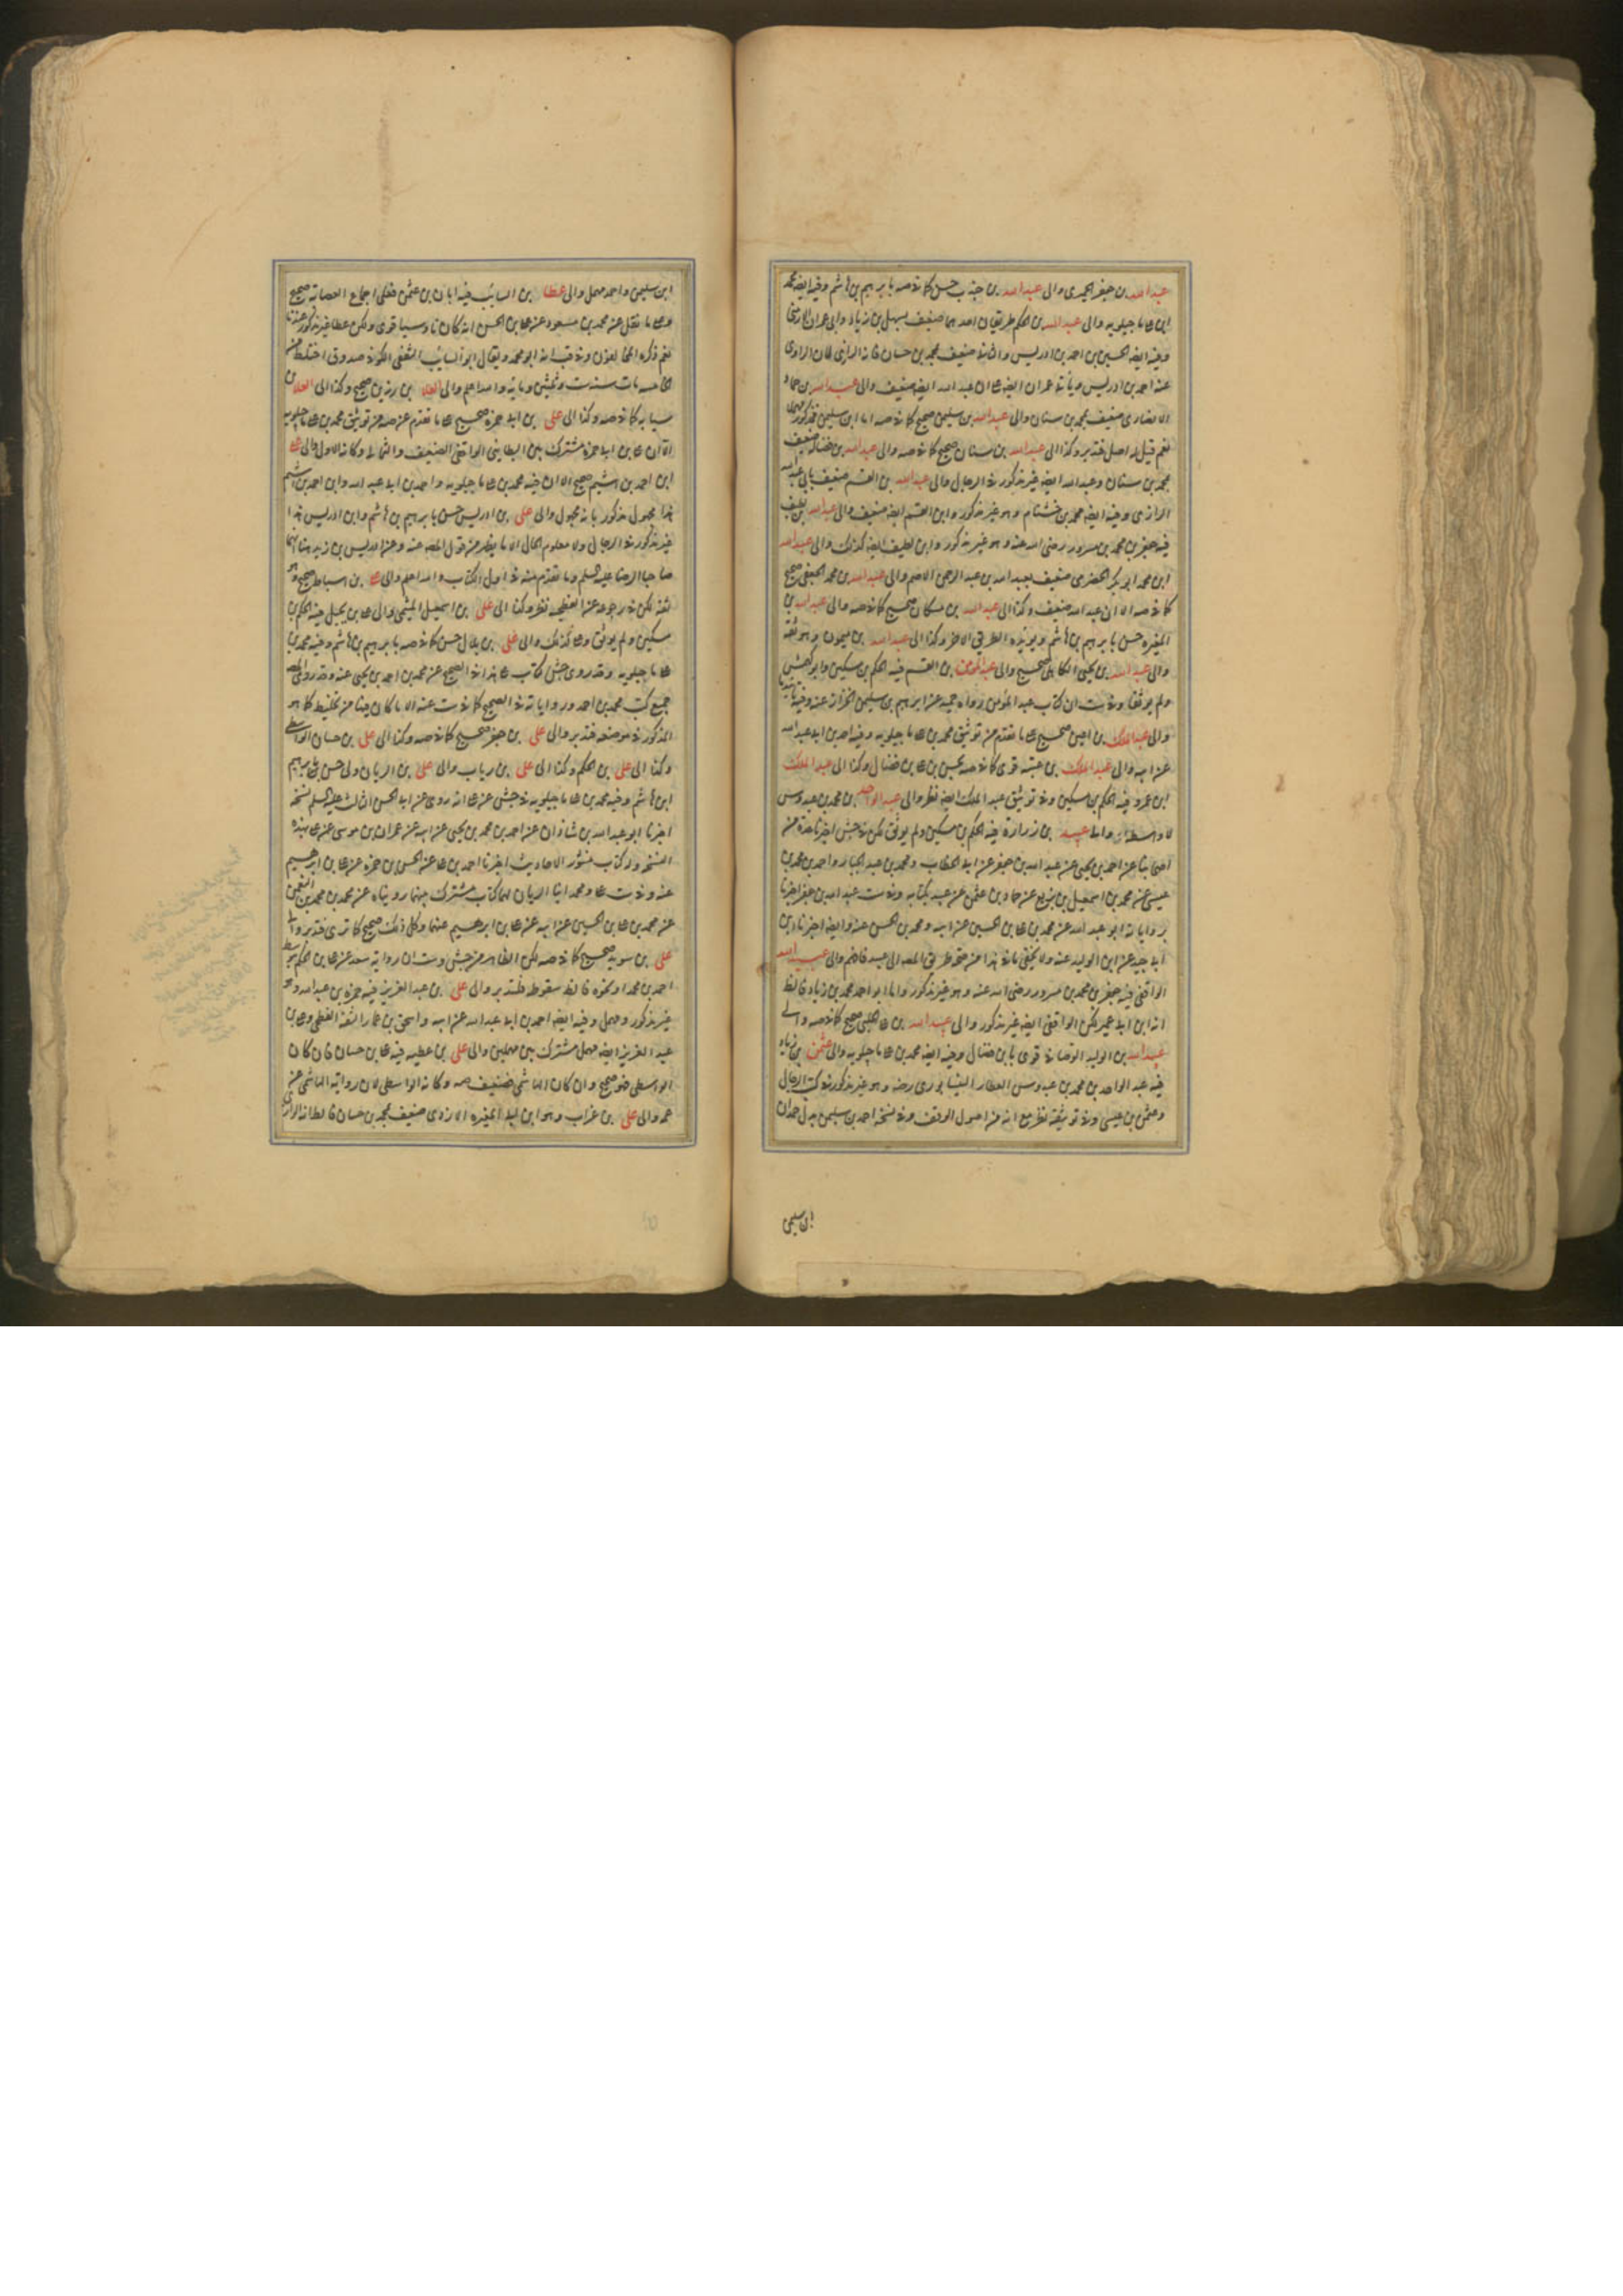 عبد الله بن جعفر الحميرى والى عبد الله بن جندب حسن كما فى صه بابرهيم بن هاشم وفيه ايضا محمد
ابن على ماجيلويه والى عبد الله بن الحكم طريقان احدهما ضعيف بسهل بن زياد وابى عمران الارمنى
وفيه ايضا الحسين بن احمد بن ادريس والثانى ضعيف بمحمد بن حسان فانه الرازى لان الراوى
عنه احمد بن ادريس عمران ايضا على ان عبد الله ايضا ضعيف والى عبد الله بن حماد
الانصارى ضعيف بمحمد بن سنان والى عبد الله بن سليمن صحيح كما فى صه اما ابن سليمن فمذكور
نعم قيل له اصل فتدبر وكذا الى عبد الله بن سنان صحيح كما فى صه والى عبد الله بن فضالة ضعيف
بمحمد بن سنان وعبد الله ايضا غير مذكور فى الرجال والى عبد الله بن القسم ضعيف بابى عبد الله
الرازى وفيه ايضا محمد بن خشنام وهو غير مذكور وابن القسم ايضا ضعيف والى عبد الله بن لطيف
فيه جعفر بن محمد بن مسرور رضى الله عنه وهو غير مذكور وابن لطيف ايضا كذلك والى عبد الله
ابن محمد ابى بكر الحضرمى ضعيف بعبد الله بن عبد الرحمن الاصم والى عبد الله بن محمد الجعفى صحيح
كما فى صه الا ان عبد الله ضعيف وكذا الى عبد الله بن مسكان صحيح كما فى صه والى عبد الله بن
المغيره حسن بابرهيم بن هاشم ويؤيده الطريق الاخر وكذا الى عبد الله بن ميمون وهو ثقه
والى عبد الله بن يحيى الكاهلى صحيح والى عبد المؤمن بن القسم فيه الحكم بن مسكين وابو كهمش
ولم يوثقا وفى ست ان كتاب عبد المؤمن رواه حميد عن ابرهيم بن سليمن الخزاز عنه وفيه
والى عبد الملك بن اعين صحيح على ما تقدم من توثيق محمد بن على ماجيلويه وفيه احمد بن ابى عبد الله
عن ابيه والى عبد الملك بن عتبه قوى كما فى صه بحسن بن على بن فضال وكذا الى عبد الملك
ابن عمرو فيه الحكم بن مسكين وفى توثيق عبد الملك ايضا نظر والى عبد الواحد بن محمد بن عبدوس
لا واسطه والى عبيد بن زراره فيه الحكم بن مسكين ولم يوثق لكن فى جش اخبرنا عدة من
اصحابنا عن احمد بن يحيى عن عبد الله بن جعفر عن ابن ابى الخطاب ومحمد بن عبد الجبار واحمد بن محمد بن
عيسى عن محمد بن اسمعيل بن بزيع عن حماد بن عثمن عن عبيد بكتابه وفى ست عبد الله بن جعفر اخبرنا
برواياته ابو عبد الله عن محمد بن على بن الحسين عن ابيه ومحمد بن الحسن عنه وايضا اخبرنا ابن
ابى جيد عن ابن الوليد عنه ولا يخفى ما فى هذا من صحة طريق المصه الى عبيد فافهم والى عبيد الله
الرافقى فيه جعفر بن محمد بن مسرور رضى الله عنه وهو غير مذكور واما ابو احمد محمد بن زياد فالظ
انه ابن ابى عمير لكن الرافقى ايضا غير مذكور والى عبيد الله بن على الحلبى صحيح كما فى صه والى
عبيد الله بن الوليد الوصافى قوى بابن فضال وفيه ايضا محمد بن على ماجيلويه والى عثمن بن زياد
فيه عبد الواحد بن محمد بن عبدوس العطار النيسابورى رضه وهو غير مذكور فى كتب الرجال
وعثمن بن عيسى وفى توثيقه نظر مع انه من اصول الوقف وفى نسخه احمد بن سليمن بدل حمدان
ابن سليمن
ابن سليمن واحمد مهمل والى عطا بن السائب فيه ابان بن عثمن فعلى اجماع العصابة صحيح
وعلى ما نقل عن محمد بن مسعود عن على بن الحسن انه كان ناووسيا قوى ولكن عطا غير مذكور عندنا
نعم ذكره المخالفون وفى قب انه ابو محمد ويقال ابو السائب الثقفى الكوفى صدوق اختلط من
الخامسه مات سنه ست وثلثين ومائه والله اعلم والى العلا بن رزين صحيح وكذا الى العلا بن
سيابه كما فى صه وكذا الى على بن ابى حمزه صحيح على ما تقدم عن صه من توثيق محمد بن على ماجيلويه
الا ان على بن ابى حمزه مشترك بين البطاينى الواقفى الضعيف والثمالى وكانه الاول والى على
ابن احمد بن اشيم صحيح الا ان فيه محمد بن على ماجيلويه واحمد بن ابى عبد الله وابن احمد بن اشيم
هذا مجهول مذكور بانه مجهول والى على بن ادريس حسن بابرهيم بن هاشم وابن ادريس هذا
غير مذكور فى الرجال ولا معلوم الحال الا ما يظهر من قول المصه عنه وعن ادريس بن زيد هنا انهما
صاحبا الرضا عليه السلم وما تقدم منه فى اول الكتاب والله اعلم والى على بن اسباط صحيح وهو
ثقه لكن فى رجوعه عن الفطحيه نظر وكذا الى على بن اسمعيل الميثمى والى على بن بجيل فيه الحكم بن
مسكين ولم يوثق وعلى كذلك والى على بن بلال حسن كما فى صه بابرهيم بن هاشم وفيه محمد بن
على ماجيلويه وقد روى جش كتاب على هذا فى الصحيح عن محمد بن احمد بن يحيى عنه وقد روى المصه
جميع كتب محمد بن احمد ورواياته فى الصحيح كما فى ست عنه الا ما كان فيها من تخليط كما هو
المذكور فى موضعه فتدبر والى على بن جعفر صحيح كما فى صه وكذا الى على بن حسان الواسطى
وكذا الى على بن الحكم وكذا الى على بن رياب والى على بن الريان ولى حسن بابرهيم
ابن هاشم وفيه محمد بن على ماجيلويه فى جش عن على انه روى عن ابى الحسن الثالث عليه السلم نسخه
اخبرنا ابو عبد الله بن شاذان عن احمد بن محمد بن يحيى عن ابيه عن عمران بن موسى عن على بهذه
النسخه وله كتاب منثور الاحاديث اخبرنا احمد بن على عن الحسن بن حمزه عن على بن ابرهيم
عنه وفى ست على ومحمد ابنا الريان لهما كتاب مشترك بينهما رويناه عن محمد بن محمد بن النعمن
عن محمد بن على بن الحسين عن ابيه عن على بن ابرهيم عنهما وكل ذلك صحيح كما ترى فتدبر والى
على بن سويد صحيح كما فى صه لكن الظاهر من جش وست ان رواية سعد عن على بن الحكم بواسطه
احمد بن محمد او نحوه فالظ سقوطه فليتدبر والى على بن عبد العزيز فيه حمزه بن عبد الله وهو
غير مذكور ومهمل وفيه ايضا احمد بن ابى عبد الله عن ابيه واسحق بن عمار الثقه الفطحى وعلى بن
عبد العزيز ايضا مهمل مشترك بين مهملين والى على بن عطيه فيه على بن حسان فان كان
الواسطى فهو صحيح وان كان الهاشمى فضعيف صه وكانه الواسطى لان رواية الهاشمى عن
عمه والى على بن غراب وهو ابن ابى المغيره الازدى ضعيف بمحمد بن حسان فالظ انه الرازى